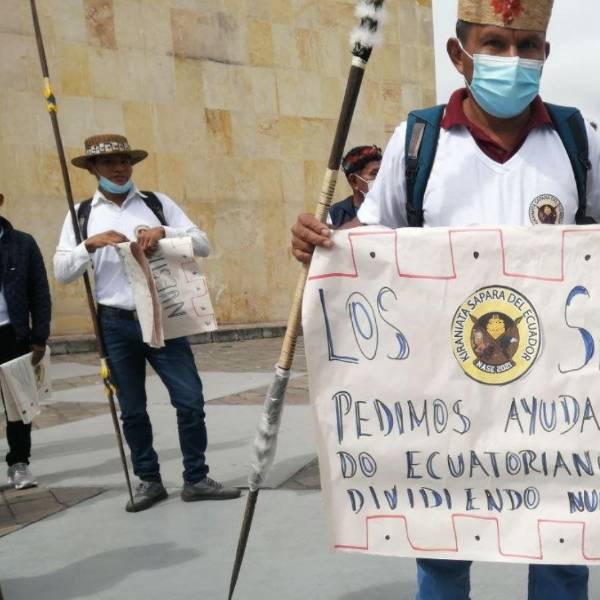 LOS S
KIRANIATA SAPARA DEL ECUADOR
NASE 2021
PEDIMOS AYUDA
DO ECUATORIAN
DIVIDIENDO NU
NUES